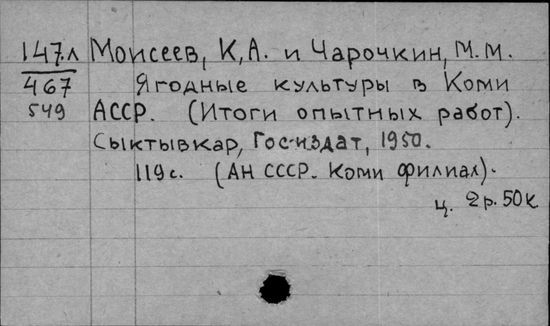 147л Моисеев, К,А. и Чарочкин, М.М.
467 Ягодные культуры в Коми
549 АССР. (Итоги опытных работ).
Сыктывкар, Гос-издат, 1950.
119с. (АН СССР. Коми филиал).
ц. 2р. 50к.